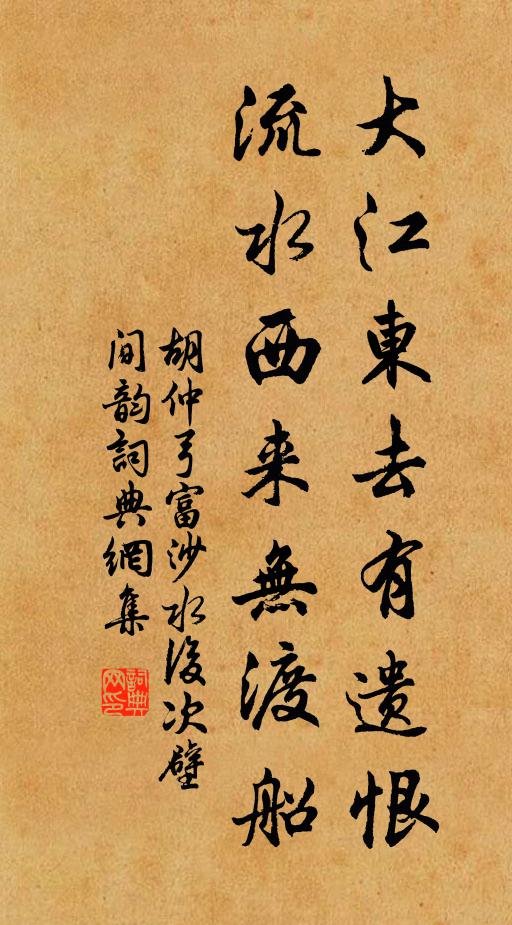 大江東去有遺恨
流水西来無渡船
胡仲弓富沙水後次壁
間韵詞典網集
詞典网印